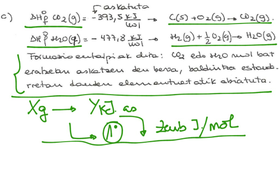 askatuta
c) ΔHf° CO2(g) = -393,5 kJ/mol → C(s) + O2(g) → CO2(g)
ΔHf° H2O(g) = -477,8 kJ/mol → H2(g) + 1/2 O2(g) → H2O(g)
Formazio entalpiak dira: CO2 edo H2O mol bat
eratzean askatzen den beroa, baldintza estand
arretan dauden elementuetatik abiatuta.
Xg → Y KJ
zenb J/mol